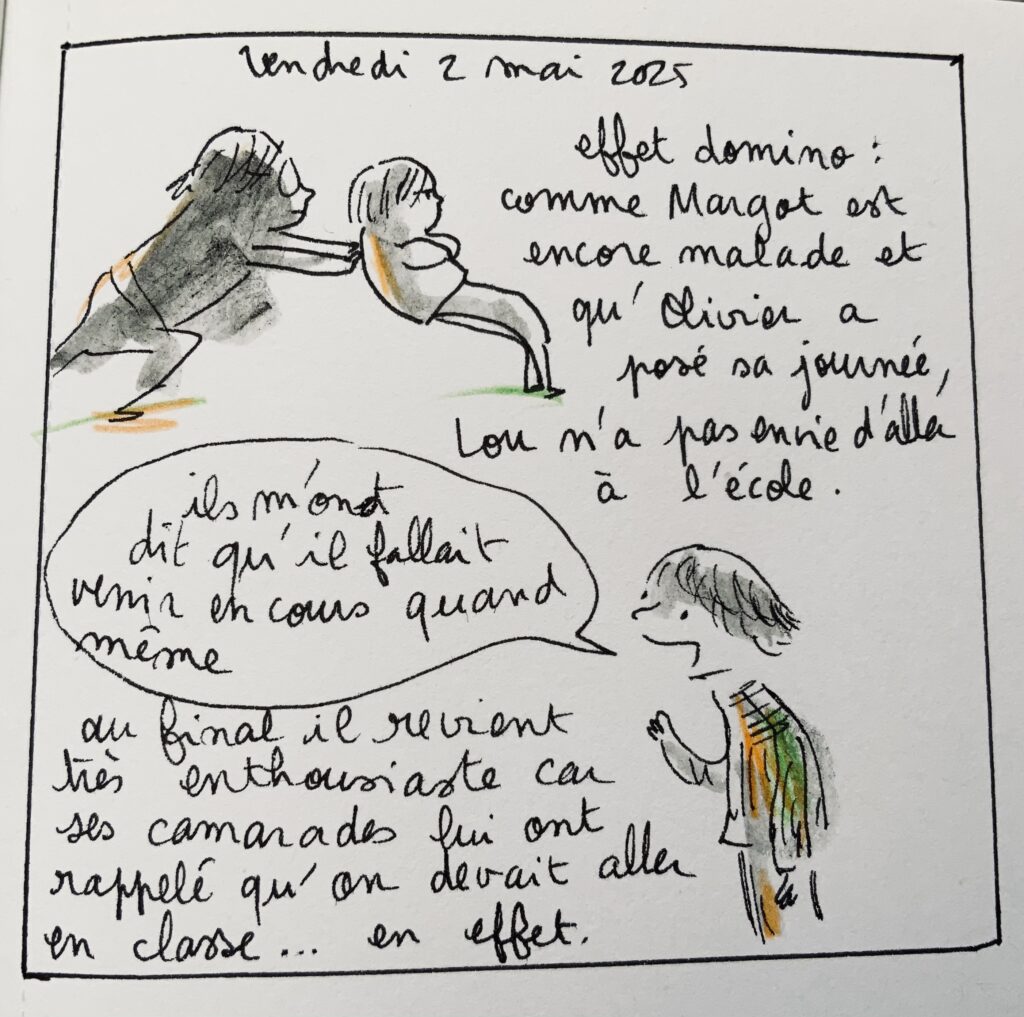 vendredi 2 mai 2025
effet domino :
comme Margot est
encore malade et
qu'Olivier a
posé sa journée,
Lou n'a pas envie d'aller
à l'école.
ils m'ont
dit qu'il fallait
venir en cours quand
même
au final il revient
très enthousiaste car
ses camarades lui ont
rappelé qu'on devait aller
en classe... en effet.